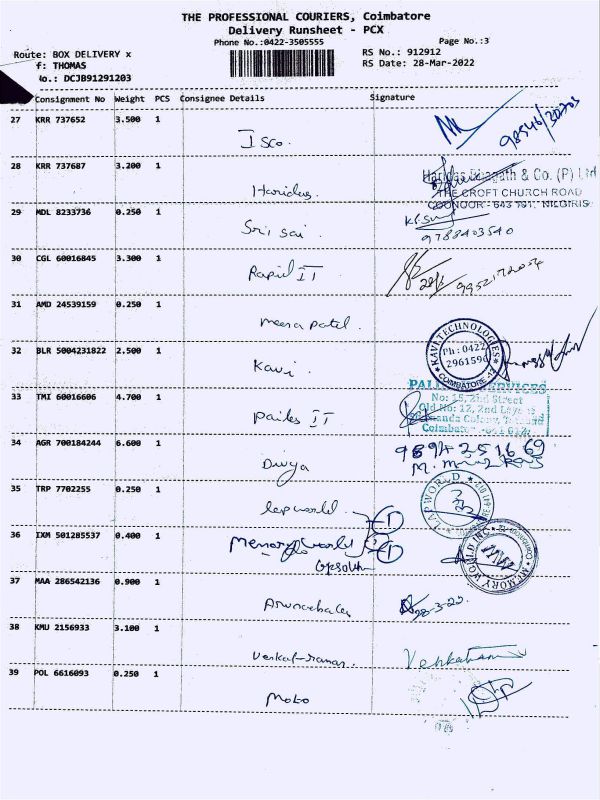 THE PROFESSIONAL COURIERS, Coimbatore
Delivery Runsheet - PCX
Phone No.:0422-3505555 Page No.:3
Route: BOX DELIVERY x RS No.: 912912
f: THOMAS RS Date: 28-Mar-2022
No.: DCJB91291203
Consignment No Weight PCS Consignee Details Signature
27 KRR 737652 3.500 1
Isco.
28 KRR 737687 3.200 1
Haridas & Co. (P) Ltd
THE CROFT CHURCH ROAD
COONOOR - 643 101. NILGIRIS
29 MDL 8233736 0.250 1
Sri Sai
9788403540
30 CGL 60016845 3.300 1
Rapid IT
31 AMD 24539159 0.250 1
meera patel.
32 BLR 5004231822 2.500 1
Kavi
KAVI TECHNOLOGIES
Ph : 0422
2961596
COIMBATORE -12
33 TMI 60016606 4.700 1
SERVICES
No: 15, 2nd Street
Old No: 12, 2nd Layout
34 AGR 700184244 6.600 1
Divya
9894251669
35 TRP 7702255 0.250 1
lapworld
LAPWORLD
36 IXM 501285537 0.400 1
Memory world
MEMORY WORLD INC
37 MAA 286542136 0.900 1
28-3-22
38 KMU 2156933 3.100 1
Venkat-raman.
39 POL 6616093 0.250 1
Moto